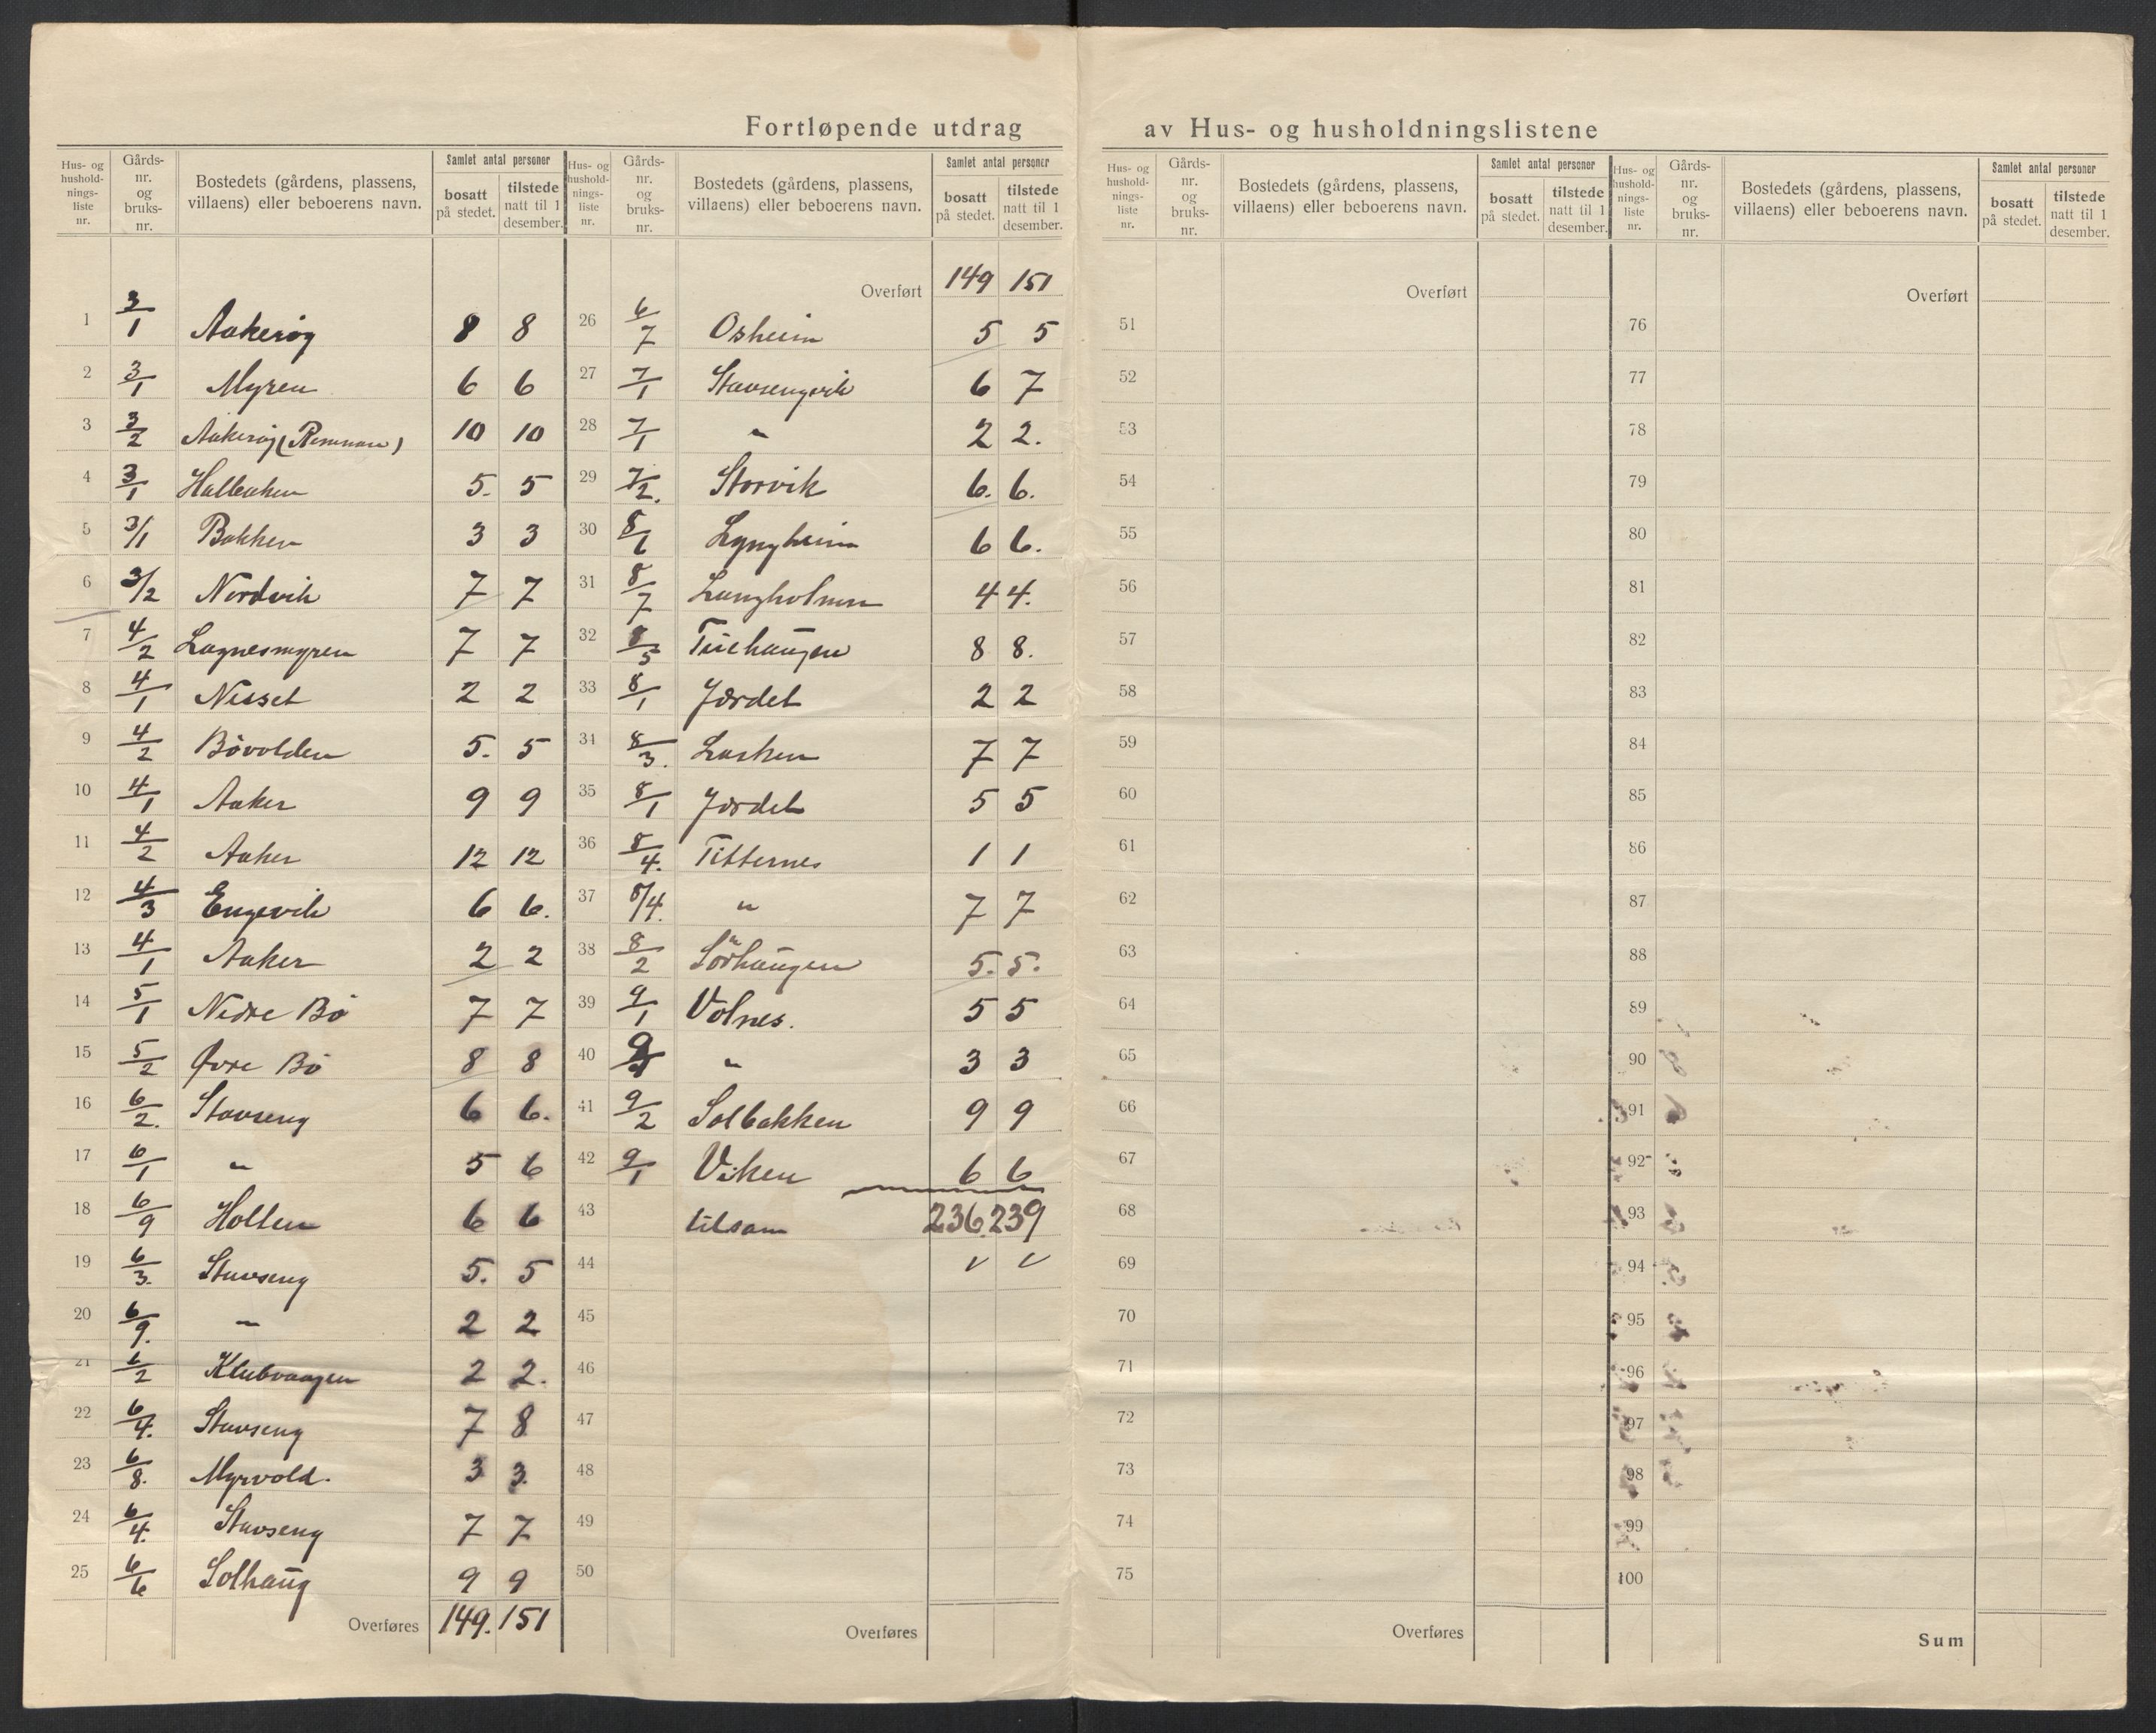 Fortløpende utdrag av Hus- og husholdningslistene
Hus- og husholdnings-liste nr. Gårds-nr. og bruks-nr. Bostedets (gårdens, plassens, villaens) eller beboerens navn. Samlet antal personer bosatt på stedet. tilstede natt til 1 desember.
1 3/1 Aakerøy 8 8
2 3/1 Myren 6 6
3 3/2 Aakerøy 10 10
4 3/1 5. 5
5 3/1 Bakken 3 3
6 3/2 Nordvik 7 7
7 4/2 Lagnesmyren 7 7
8 4/1 Nisset 2 2
9 4/2 Bøvolden 5. 5
10 4/1 Aaker 9 9
11 4/2 Aaker 12 12
12 4/3 Engevik 6 6.
13 4/1 Aaker 2 2
14 5/1 Nedre Bø 7 7
15 5/2 Øvre Bø 8 8
16 6/2. Stavseng 6 6.
17 6/1 " 5 6
18 6/9 Holten 6 6
19 6/3. Stavseng 5. 5
20 6/9. " 2 2
21 6/2 Klubvaagen 2 2.
22 6/4. Stavseng 7 8
23 6/8. Myrvold. 3 3.
24 6/4. Stavseng 7 7
25 6/6 Solhaug 9 9
Overføres 149. 151
Hus- og husholdnings-liste nr. Gårds-nr. og bruks-nr. Bostedets (gårdens, plassens, villaens) eller beboerens navn. Samlet antal personer bosatt på stedet. tilstede natt til 1 desember.
Overført 149 151
26 6/7 Osheim 5 5
27 7/1 Stavsengvik 6 7
28 7/1 " 2 2.
29 7/2. Storvik 6. 6.
30 8/6 Lyngheim 6 6.
31 8/7 Langholmen 4 4.
32 8/5 8 8.
33 8/1 Jordet 2 2
34 8/3. 7 7
35 8/1 Jordet 5 5
36 8/4. Titternes 1 1
37 8/4. " 7 7
38 8/2 Sörhaugen 5. 5.
39 9/1 Volnes. 5 5
40 9/1 " 3 3
41 9/2 Solbakken 9 9
42 9/1 Viken 6 6
43 tilsam 236. 239
44
45
46
47
48
49
50
Overføres
Hus- og husholdnings-liste nr. Gårds-nr. og bruks-nr. Bostedets (gårdens, plassens, villaens) eller beboerens navn. Samlet antal personer bosatt på stedet. tilstede natt til 1 desember.
Overført
51
52
53
54
55
56
57
58
59
60
61
62
63
64
65
66
67
68
69
70
71
72
73
74
75
Overføres
Hus- og husholdnings-liste nr. Gårds-nr. og bruks-nr. Bostedets (gårdens, plassens, villaens) eller beboerens navn. Samlet antal personer bosatt på stedet. tilstede natt til 1 desember.
Overført
76
77
78
79
80
81
82
83
84
85
86
87
88
89
90
91
92
93
94
95
96
97
98
99
100
Sum